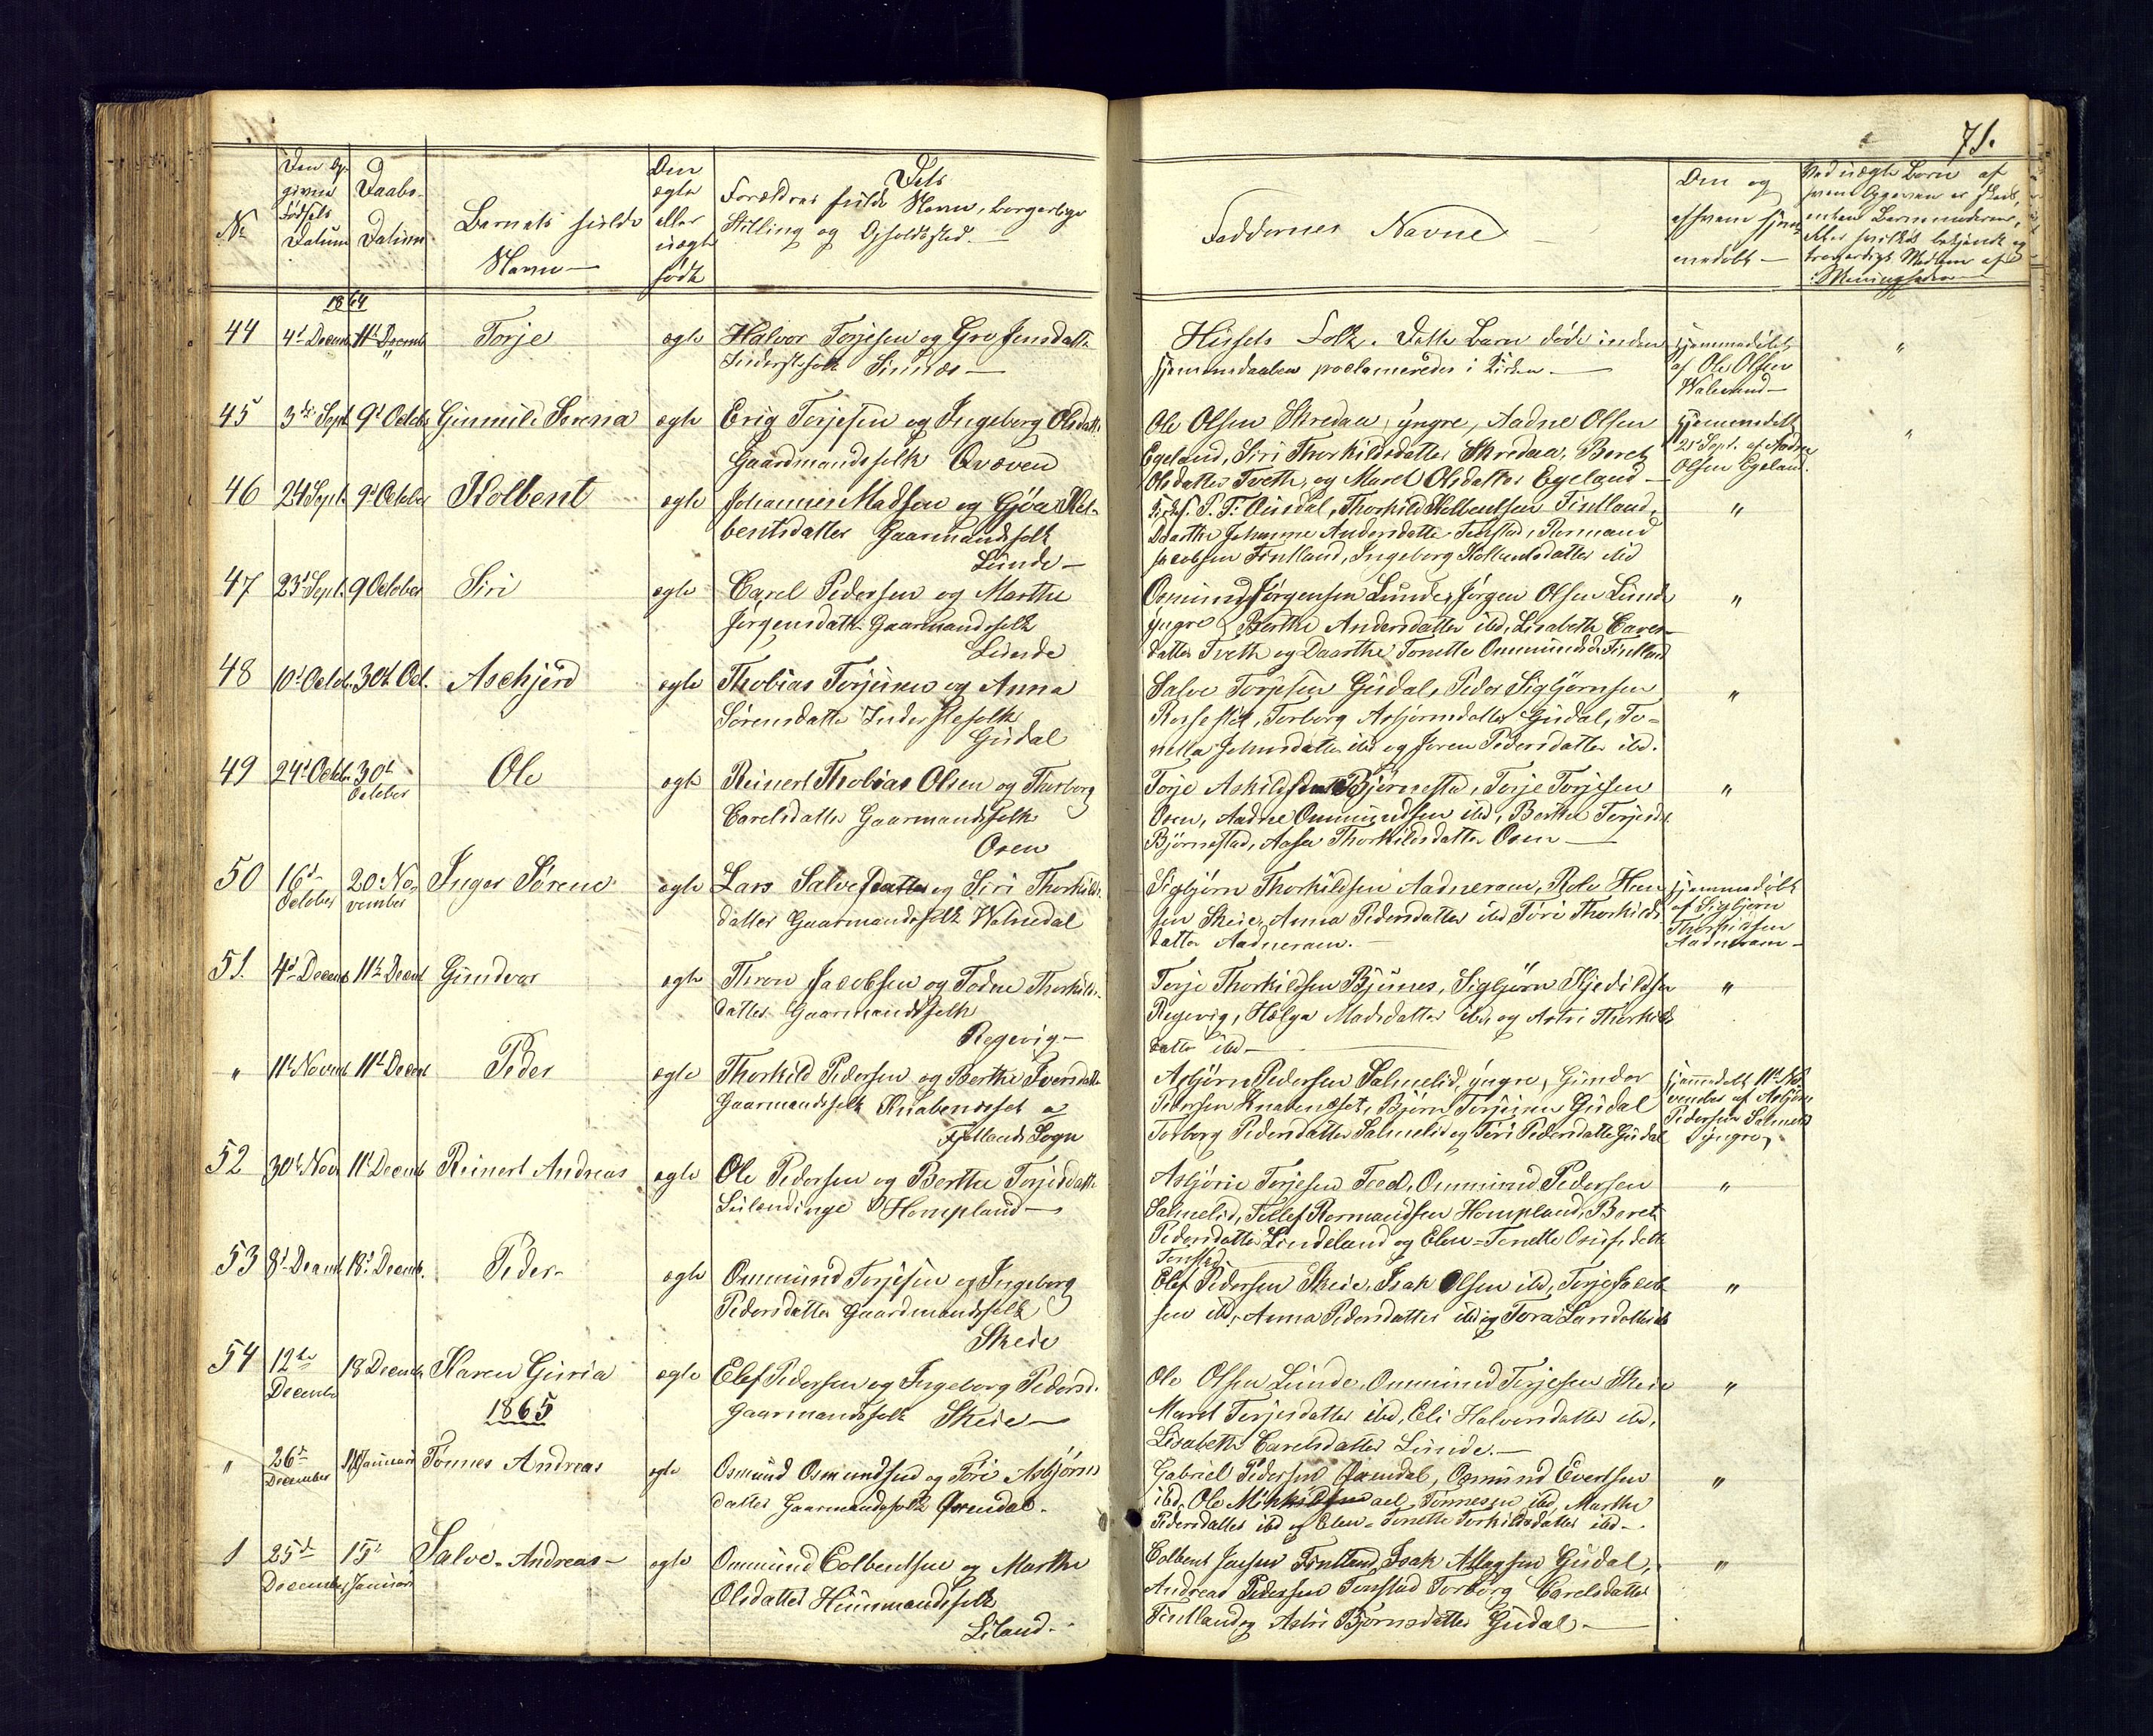 71.
No
Den Op-
givne
Fødsels
Datum
Daabs-
Datum
Barnets fulde
Navn —
Den
ægte
eller
uægte
fødte
Dets
Forældres fulde Navn, borgerlige
Stilling og Opholdssted. —
Faddernes Navne —
Om og
af hvem hjem-
medøbt —
Ved uægte Børn af
hvem Opgaven er skeet,
enten Barnemoderen,
eller hvilket bekjendt og
troværdigt Medlem af
Menigheden —
1864
44 4d Decemb 11t Decemb " Torje ægte Halvor Torjesen og Gro Jensdatte
Inderstefolk Sinnæs —
Hussets Folk. Dette Barn døde inden
hjemmedaaben proclameredes i Kirken. —
hjemmedøbt
af Ole Olsen
"
45 3de Sept 9d Octobr Gunnild Serena ægte Erig Torjesen og Ingeborg Olsdatte
Gaardmandsfolk Qvæven
Ole Olsen Skredaa, yngre, Aadne Olsen
Egeland, Siri Thorkildsdatter Skredaa, Beret
Olsdatter Tveth, og Maret Olsdatter Egeland —
hjemmedøbt
25 Sept. af Aadne
Olsen Egeland.
"
46 24d Sept. 9d October Kolbent ægte Johannes Madsen og Gjøa Kol-
bentsdatter Gaarmandsfolk
Lunde —
P. T. Ousdal, Thorkild Kolbentsen Fintland,
Daarthe Johanne Andersdatte Tonstad, Rormand
Jacobsen Fintland, Ingeborg Kolbentsdatter ibd
"
47 23d Sept. 9 October Siri ægte Carel Pedersen og Marthe
Jørgensdatte Gaarmandsfolk
Lunde
Osmund Jørgensen Lunde, Jørgen Olsen Lunde
yngre, Berthe Andersdatter ibd, Lisabeth Carels-
datter Tveth og Daarthe Tonette Ommundsd. Fintland
"
48 10d Octob. 30d Oct. Aschjerd ægte Thobias Torjusen og Anna
Sørensdatte Inderstefolk
Gusdal
Salve Torjesen Gusdal, Peder Sigbjørnsen
Rossestøl, Torborg Asbjørnsdatter Gusdal, To-
nella Johnsdatter ibd og Joren Pedersdatter ibd.
"
49 24d Octob. 30d
October Ole ægte Reinert Thobias Olsen og Thorborg
Carelsdatter Gaarmandsfolk
Osen
Torje Askildsen Bjørnestad, Torje Torjesen
Osen, Aadne Ommundsen ibd, Berthe Torjesd.
Bjørnestad, Aase Thorkildsdatter Osen —
"
50 16d
October 20d No-
vember Inger Sørene ægte Lars Salvesen og Siri Thorkilds-
datter Gaarmandsfolk Valnedal
Sigbjørn Thorkildsen Aadneram, Rolv Han-
sen Skeie, Anna Pedersdatter ibd Tøri Thorkilds-
datter Aadneram. —
hjemmedøbt
af Sigbjørn
Thorkildsen
Aadneram —
51. 4d Decemb 11te Decemb Gundvor ægte Thron Jacobsen og Todne Thorkilds-
datter Gaarmandsfolk
Regevig —
Torje Thorkildsen Bjunes, Sigbjørn Kjedilsen
Regevig, Helga Madsdatter ibd, og Astri Thorkilds
datter ibd —
"
" 11t Novemb 11t Decemb Peder ægte Thorkild Pedersen og Berthe Iversdatte
Gaarmandsfolk Knabenosset a
Fjotlands Sogn
Asbjørn Pedersen Salmelid, yngre, Gunder
Pedersen Knabenosset, Bjørn Torjusen Gusdal
Torborg Pedersdatter Salmelid og Tøri Pedersdatte Gusdal
hjemmedøbt 11te No-
vember af Asbjørn
Pedersen Salmelid
yngre,
52 30d Nov. 11t Decemb Reinert Andreas ægte Ole Pedersen og Berthe Torjesdatte
Hompland —
Asbjørn Torjesen Tveed, Ommund Pedersen
Salmelid, Tellef Rormandsen Hompland, Beret
Pedersdatter Lindeland og Elen-Tonette Osufsdatte
Tonstad
"
53 8d Decemb 18d Decemb. Peder ægte Ommund Torjesen og Ingeborg
Pedersdatter Gaardmandsfolk
Skeie
Elef Pedersen Skeie, Isak Olsen ibd, Torje Jacob-
sen ibd, Anna Pedersdatter ibd og Tora Larsdatter ib
"
54 12te
December 18 Decemb Karen Guria ægte Elef Pedersen og Ingeborg Pedersd.
Gaarmandsfolk Skeie —
Ole Olsen Lunde, Ommund Torjesen Skeie
Maret Torjesdatter ibd, Eli Halvorsdatter ibd,
Lisabeth Carelsdatter Lunde. —
"
1865
" 26d
December Januari Tønnes Andreas ægte Osmund Osmundsen og Tøri Asbjørns
datter Gaarmandsfolk Qvendal.
Gabriel Pedersen Qvindal, Osmund Evertsen
ibd, Ole Mikkel Tønnessen ibd, Marthe
Pedersdatter ibd og Elen-Tonette Torkildsdatter ibd —
"
1 25d
December 15d
Januari Salve-Andreas — ægte Ommund Colbentsen og Marthe
Olsdatter Huusmandsfolk
Liland.
Colbent Josefsen Fintland, Isak Aslagsen Gusdal,
Andreas Pedersen Tonstad Torborg Carelsdatter
Fintland og Astri Bjørnsdatter Gusdal. —
"